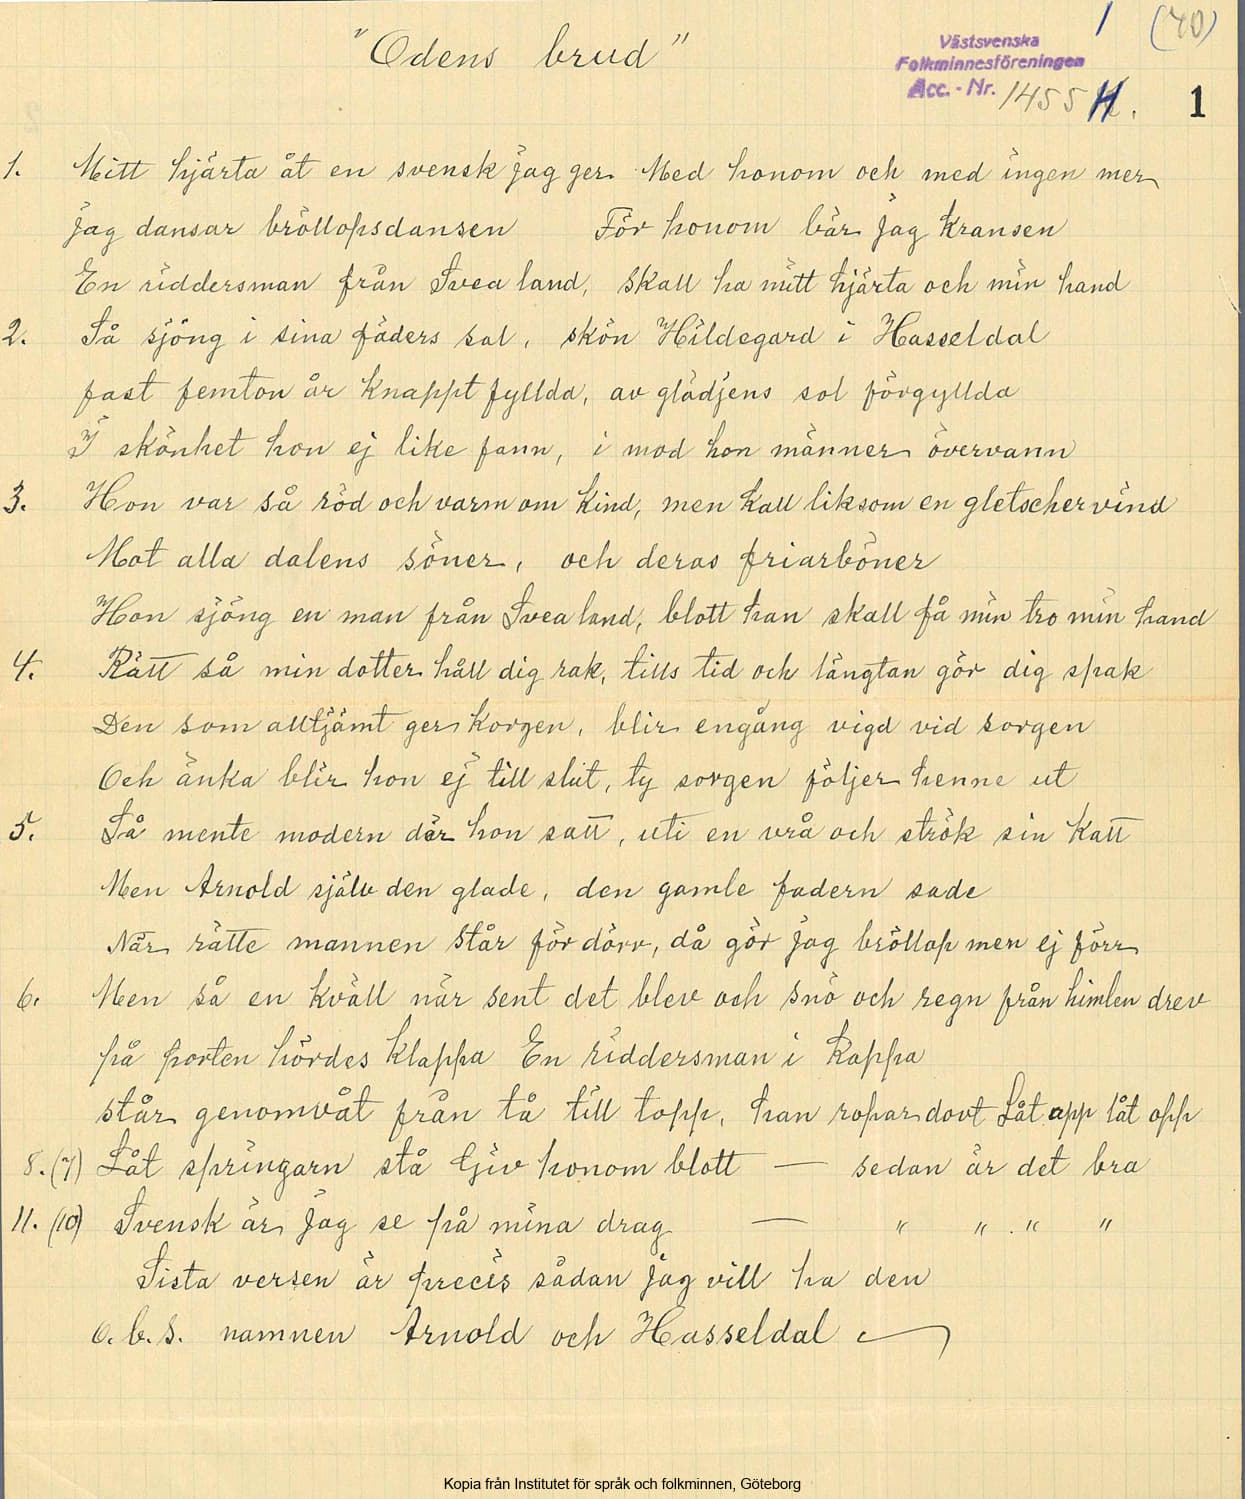 "Odens brud"
1 (40)
Västsvenska
Folkminnesföreningen
Acc.-Nr. 1455 H. 1
1. Mitt hjärta åt en svensk jag ger. Med honom och med ingen mer
jag dansar bröllopsdansen För honom bär jag Kransen
En riddersman från Svea land, skall ha mitt hjärta och min hand
2. Så sjöng i sina fäders sal, skön Hildegard i Hasseldal
fast femton år knappt fyllda, av glädjens sol förgyllda
I skönhet hon ej like fann, i mod hon männer övervann
3. Hon var så röd och varm om Kind, men kall liksom en gletschervind
Mot alla dalens söner, och deras friarböner
Hon sjöng en man från Svea land, blott han skall få min tro min hand
4. Rätt så min dotter håll dig rak, tills tid och längtan gör dig spak
Den som alltjämt ger Korgen, blir engång vigd vid sorgen
Och änka blir hon ej till slut, ty sorgen följer henne ut
5. Så mente modern där hon satt, uti en vrå och strök sin Katt
Men Arnold själv den glade, den gamle fadern sade
När rätte mannen står för dörr, då gör jag bröllop men ej förr
6. Men så en kväll när sent det blev och snö och regn från himlen drev
på porten hördes Klappa En riddersman i Kappa
står genomvåt från tå till topp, han ropar dovt Låt opp låt opp
8. (7) Låt springarn stå Giv honom blott — sedan är det bra
11. (10) Svensk är jag se på mina drag — " " . " "
Sista versen är precis sådan jag vill ha den
o.b.s. namnen Arnold och Hasseldal
Kopia från Institutet för språk och folkminnen, Göteborg